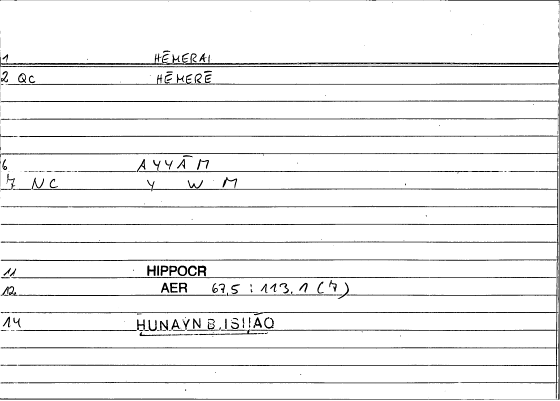 1 HĒMERAI
2 QC HĒMERĒ
6 AYYĀM
7 NC Y W M
11 HIPPOCR
12 AER 67,5 : 113,1 (7)
14 ḤUNAYN B. ISḤĀQ